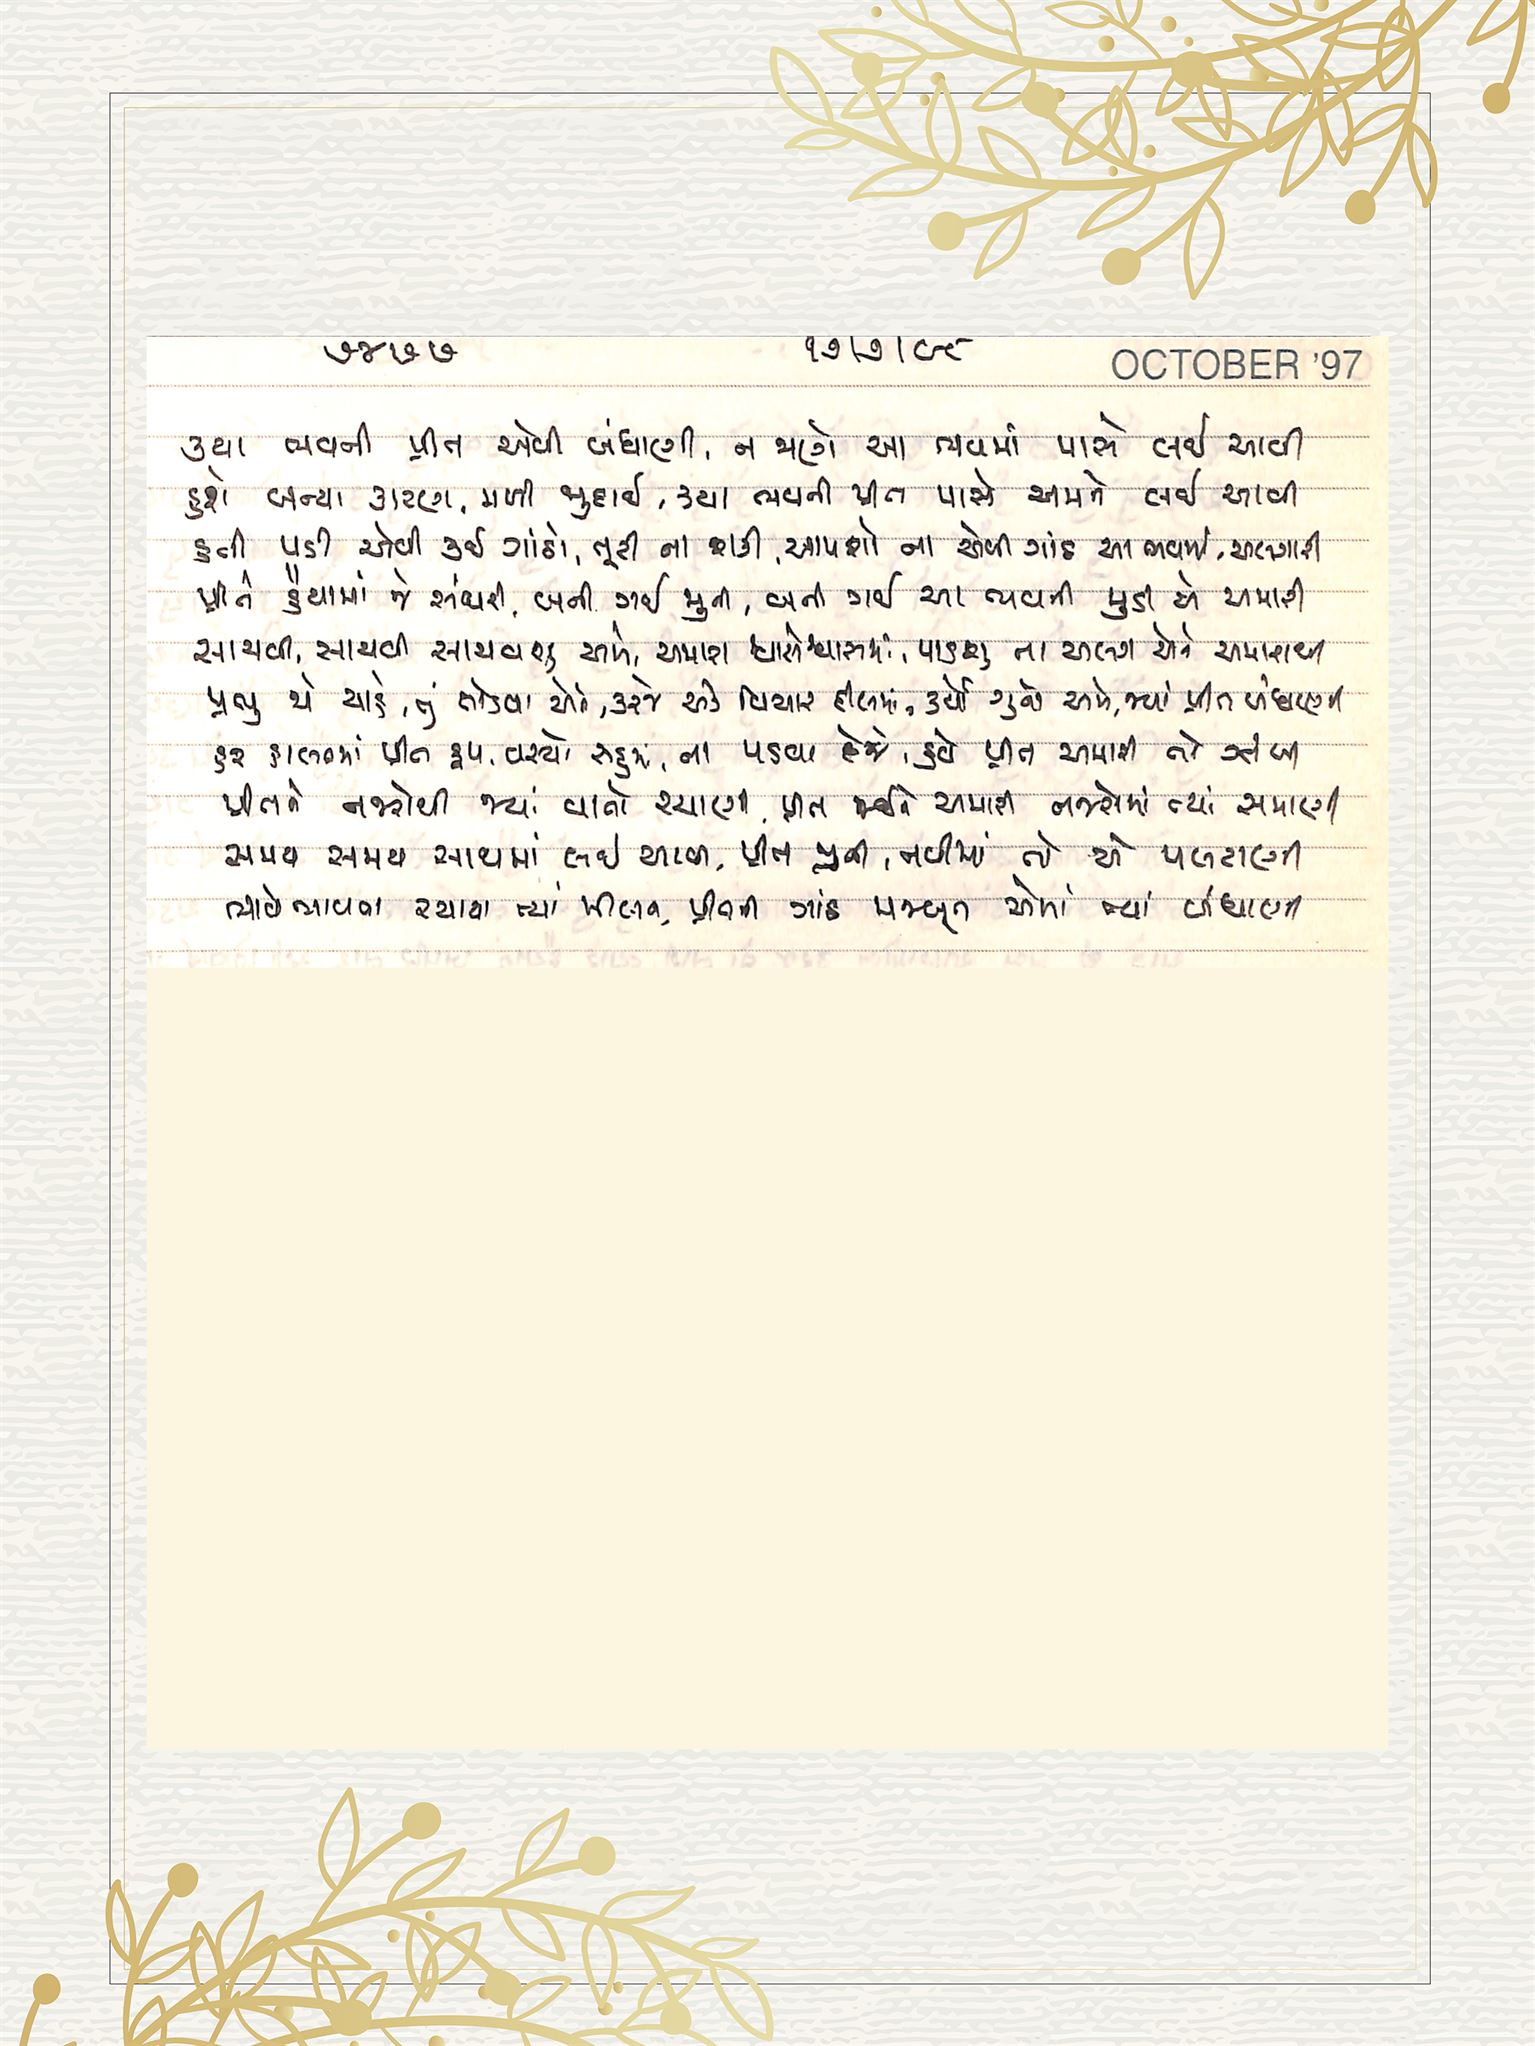 ૭૪૭૭ ૧૭|૭|૯૮
OCTOBER '97
કયા ભવની પ્રીત એવી બંધાણી, ન જાણે આ ભવમાં પાસે લઈ આવી
હશે બન્યા કારણ, મળી જુદાઈ, કયા ભવની પ્રીત પાસે અમને લઈ આવી
હતી પડી એવી કઈ ગાંઠો, તૂટી ના શકી, આપશો ના એવી ગાંઠ આ ભવમાં, અલગારી
પ્રીતને હૈયામાં જે સંઘરી, બની ગઈ મુડી, બની ગઈ આ ભવની મુડી એ અમારી
સાચવી, સાચવી સાચવશું અમે, અમારા શ્વાસેશ્વાસમાં, પાડશું ના અલગ એને અમારાથી
પ્રભુ જે ચાહે, તું તોડવા એને, કરજે એક વિચાર દીલમાં, કર્યો ગુનો અમે, જ્યાં પ્રીત બંધાણી
હર હાલતમાં પ્રીત રૂપ, વસ્યો હૃદયમાં, ના પડવા દેજે, હવે પ્રીત અમારી તો
પ્રીતને નજરોથી જ્યાં વાતો રચાણી, પ્રીત અમારી નજરોમાં ત્યાં સમાણી
સમય સમય સાથમાં લઈ આવી, પ્રીત જુની, નવીમાં તો એ પલટાણી
ભાવે ભાવના રચાયા ત્યાં મીલન, પ્રીતની ગાંઠ મજબૂત એમાં જ્યાં બંધાણી